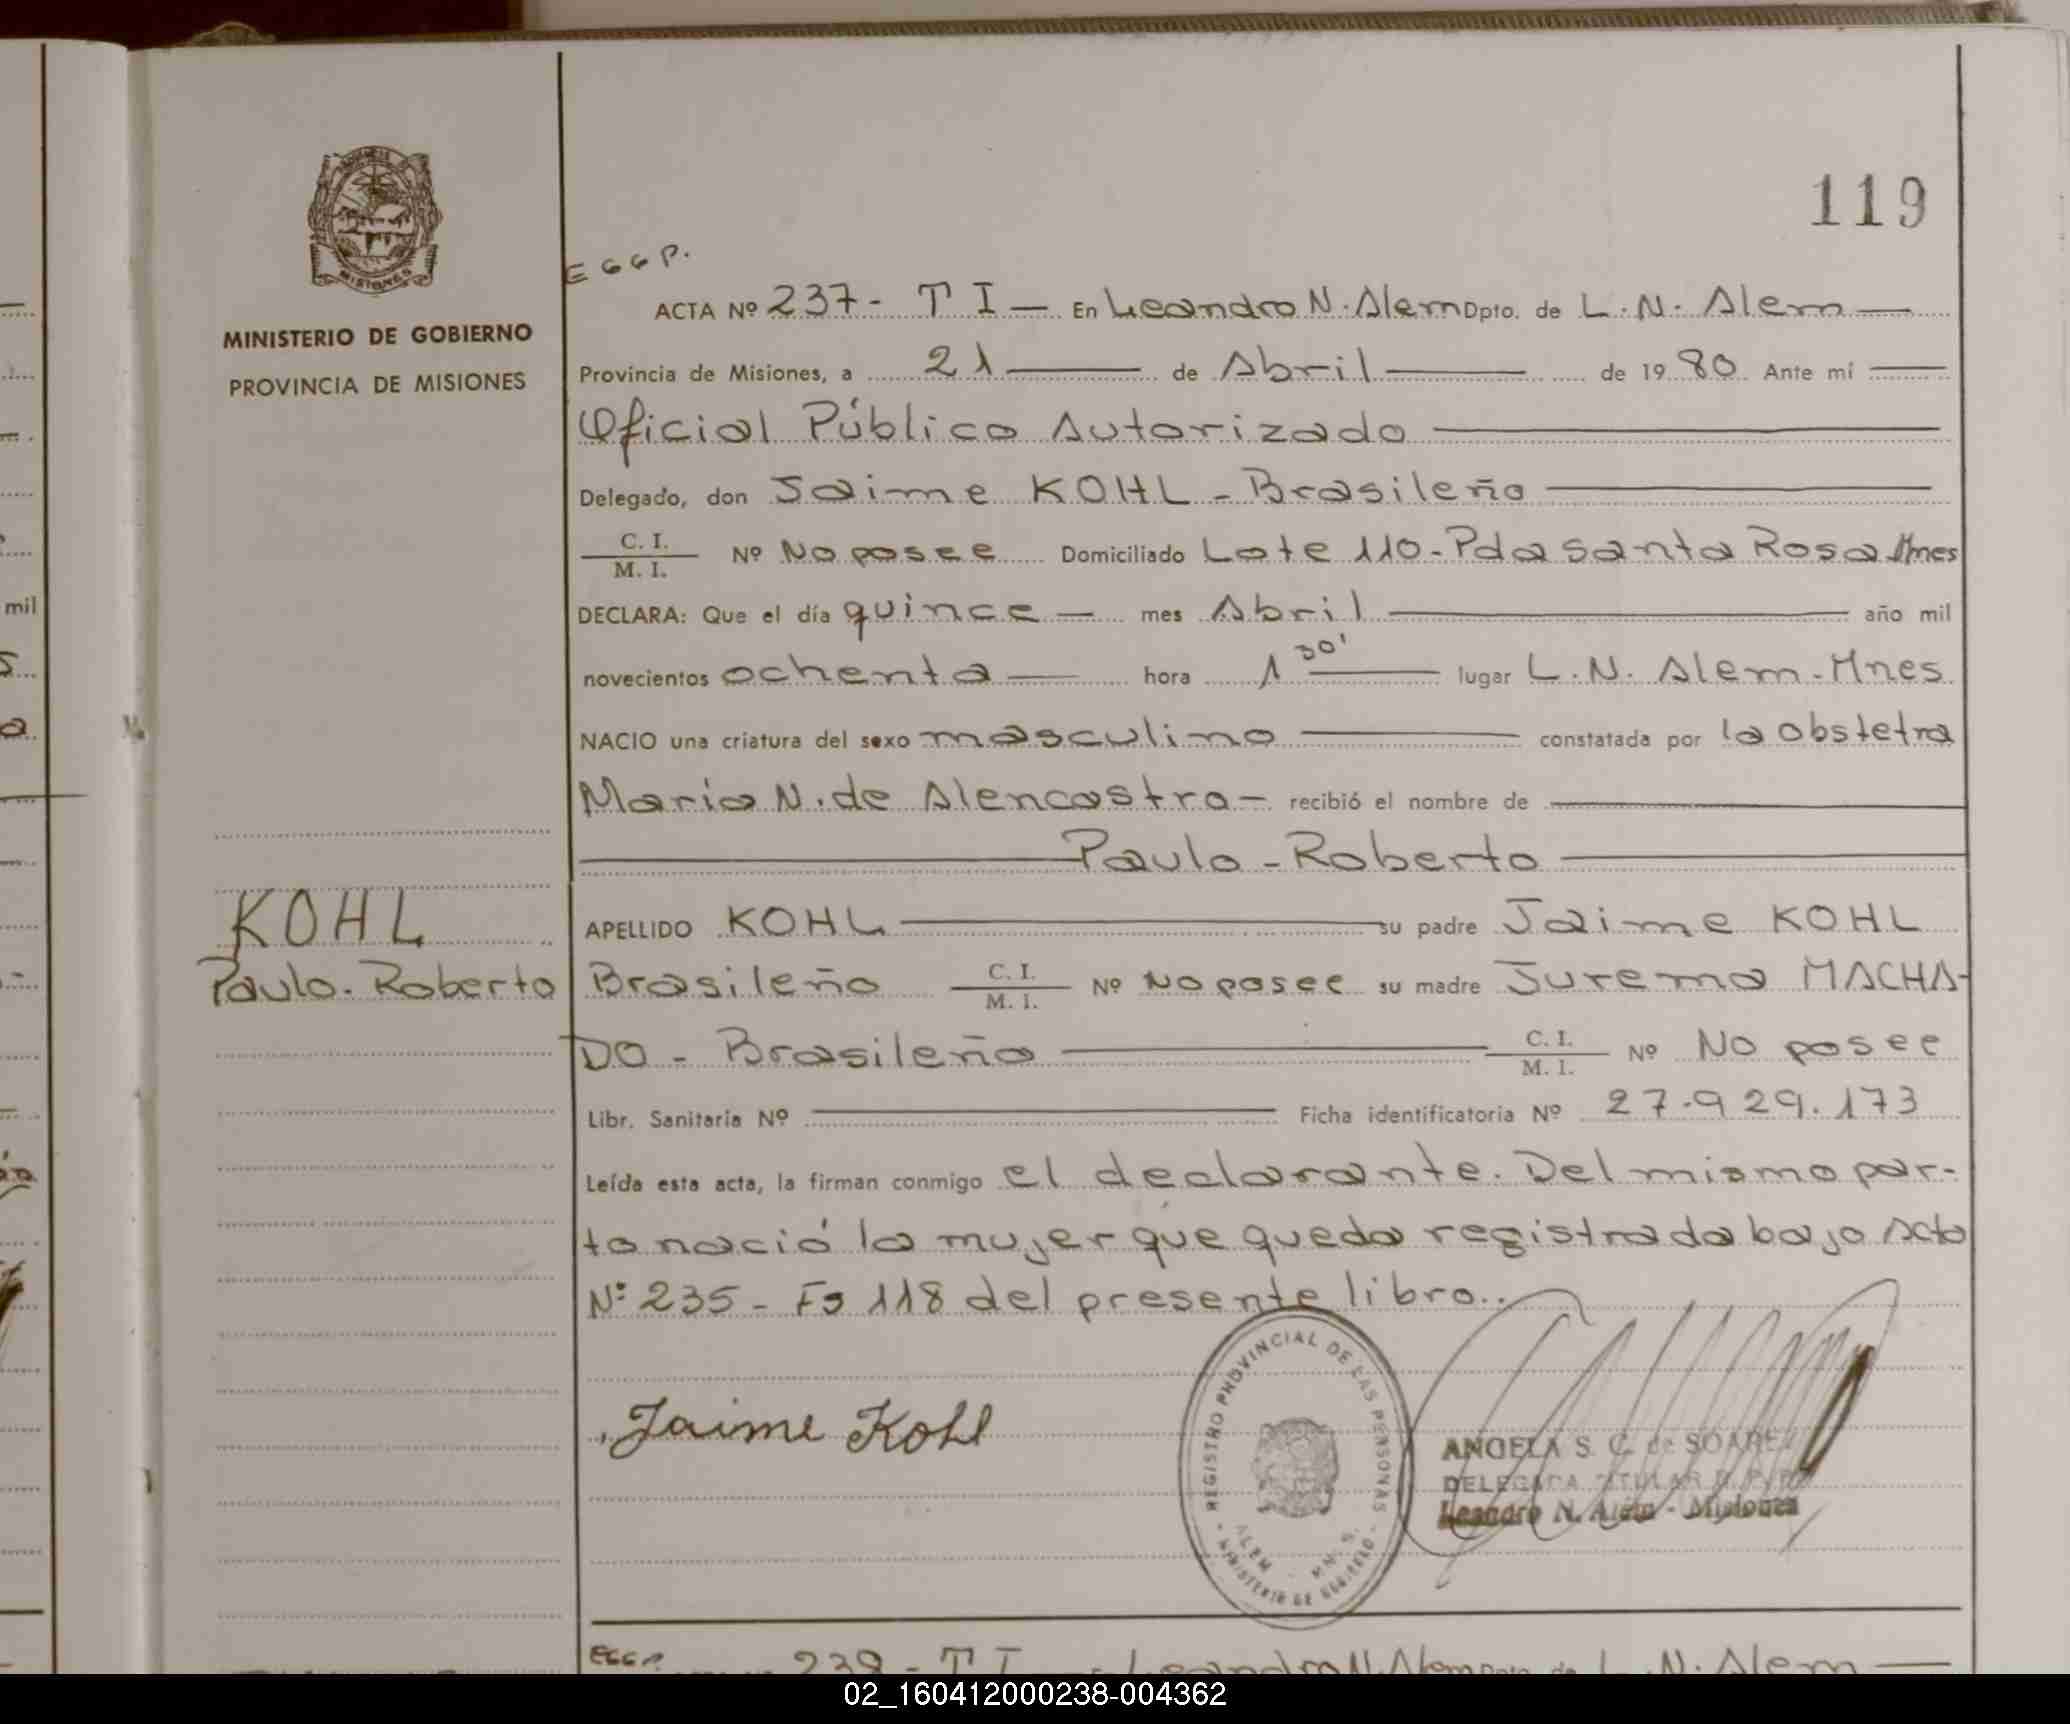 119
MISIONES
MINISTERIO DE GOBIERNO
PROVINCIA DE MISIONES
KOHL
Paulo-Roberto
EGGP.
ACTA Nº 237- T I — En Leandro N. Alem Dpto. de L. N. Alem —
Provincia de Misiones, a 21 — de Abril — de 1980 Ante mí —
Oficial Público Autorizado —
Delegado, don Jaime KOHL - Brasileño —
C. I.
M. I. Nº No posee Domiciliado Lote 110-Pda Santa Rosa Mnes
DECLARA: Que el día quince — mes Abril — año mil
novecientos ochenta — hora 1 30' — lugar L. N. Alem-Mnes
NACIO una criatura del sexo masculino — constatada por la obstetra
Maria N. de Alencastro - recibió el nombre de —
— Paulo - Roberto —
APELLIDO KOHL — su padre Jaime KOHL
Brasileño C. I. M. I. Nº No posee su madre Jurema MACHA-
DO - Brasileña — C. I. M. I. Nº No posee
Libr. Sanitaria Nº — Ficha identificatoria Nº 27.929.173
Leída esta acta, la firman conmigo el declarante. Del mismo par-
to nació la mujer que queda registrada bajo Acta
Nº 235 - Fº 118 del presente libro..
Jaime Kohl
REGISTRO PROVINCIAL DE LAS PERSONAS
ALEM - MNES.
MINISTERIO DE GOBIERNO
ANGELA S. C. de SOAREZ
DELEGADA TITULAR R. P. P.
Leandro N. Alem - Misiones
EGGP. 238 - T I — En Leandro N. Alem Dpto. de L. N. Alem —
mil
02_160412000238-004362